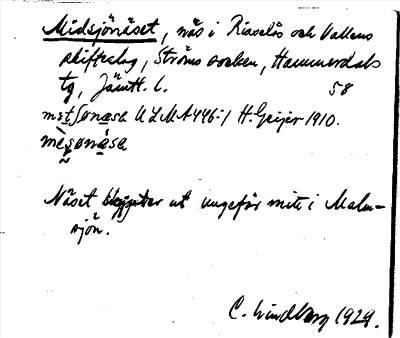 Midsjönäset, näs i Risselås och Vallens
skifteslag, Ströms socken, Hammerdals
tg, Jämtl. l. 58
ULMA 446:1 H. Geijer 1910.
Näset skjuter ut ungefär mitt i Malm-
sjön.
C. Lindberg 1929.